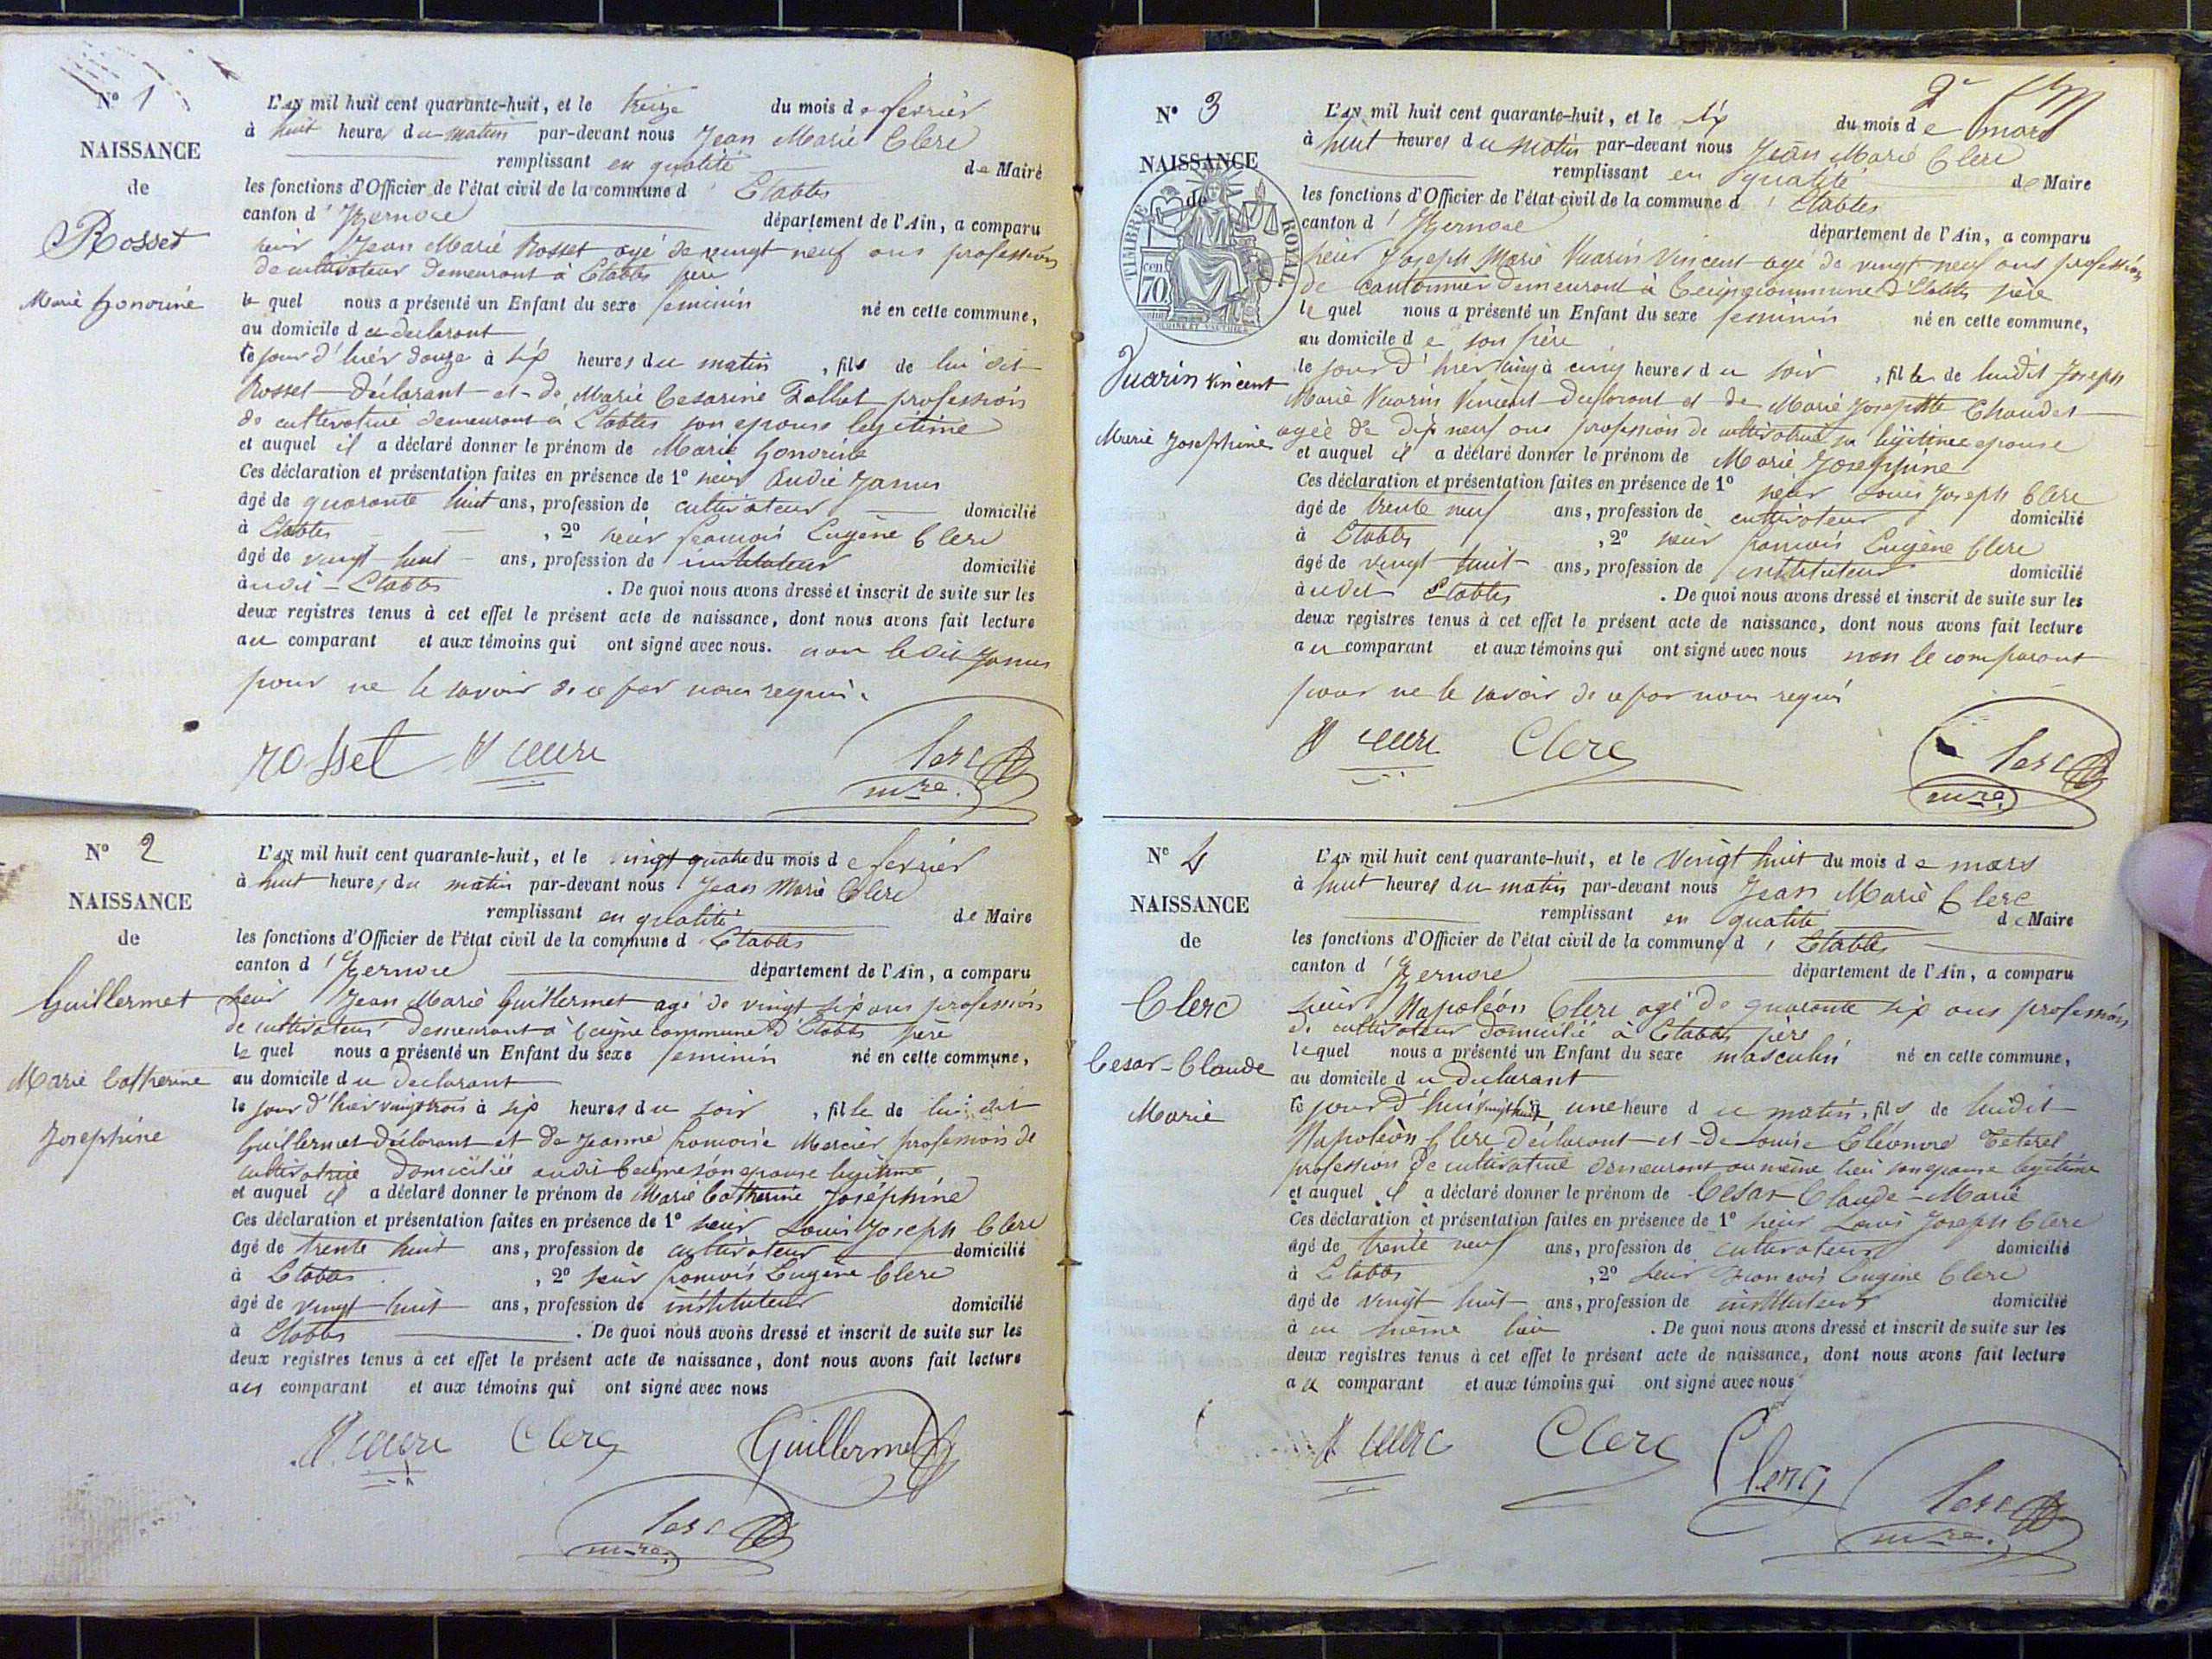 N° 1
NAISSANCE
de
Rosset
Marie honorine
L'AN mil huit cent quarante-huit, et le treize du mois de fevrier
à huit heures du matin par-devant nous Jean Marie Clerc
remplissant en qualité de Maire
les fonctions d'Officier de l'état civil de la commune d' Etables
canton d' Izernore département de l'Ain, a comparu
sieur Jean Marie Rosset agé de vingt neuf ans profession
de cultivateur demeurant à Etables père
le quel nous a présenté un Enfant du sexe feminin né en cette commune,
au domicile du declarant
le jour d'hier douze à six heures du matin, fils de lui dit
Rosset declarant et de Marie Cesarine profession
de cultivatrice demeurant à Etables son epouse legitime
et auquel il a déclaré donner le prénom de Marie honorine
Ces déclaration et présentation faites en présence de 1° sieur André
âgé de quarante huit ans, profession de cultivateur domicilié
à Etables, 2° sieur francois Eugène Clerc
âgé de vingt huit ans, profession de instituteur domicilié
audit Etables. De quoi nous avons dressé et inscrit de suite sur les
deux registres tenus à cet effet le présent acte de naissance, dont nous avons fait lecture
au comparant et aux témoins qui ont signé avec nous. non ledit
pour ne le savoir de ce par nous requis.
rosset Clerc
mre.
N° 2
NAISSANCE
de
Guillermet
Marie Catherine
Josephine
L'AN mil huit cent quarante-huit, et le vingt quatre du mois de fevrier
à huit heures du matin par-devant nous Jean Marie Clerc
remplissant en qualité de Maire
les fonctions d'Officier de l'état civil de la commune d' Etables
canton d' Izernore département de l'Ain, a comparu
sieur Jean Marie Guillermet agé de vingt six ans profession
de cultivateur demeurant à commune d'Etables père
le quel nous a présenté un Enfant du sexe feminin né en cette commune,
au domicile du declarant
le jour d'hier vingt trois à six heures du soir, fille de lui dit
Guillermet declarant et de Jeanne francoise Mercier profession de
cultivatrice domiciliée audit son epouse legitime
et auquel il a déclaré donner le prénom de Marie Catherine Joséphine
Ces déclaration et présentation faites en présence de 1° sieur Louis Joseph Clerc
âgé de trente huit ans, profession de cultivateur domicilié
à Etables, 2° sieur francois Eugène Clerc
âgé de vingt huit ans, profession de instituteur domicilié
à Etables. De quoi nous avons dressé et inscrit de suite sur les
deux registres tenus à cet effet le présent acte de naissance, dont nous avons fait lecture
au comparant et aux témoins qui ont signé avec nous
Clerc Guillermet
Clerc
mre.
2e
N° 3
NAISSANCE
de
TIMBRE ROYAL
cen 70
Vuarin Vincent
Marie Josephine
L'AN mil huit cent quarante-huit, et le six du mois de mars
à huit heures du matin par-devant nous Jean Marie Clerc
remplissant en qualité de Maire
les fonctions d'Officier de l'état civil de la commune d' Etables
canton d' Izernore département de l'Ain, a comparu
sieur Joseph Marie Vuarin Vincent agé de vingt neuf ans profession
de cantonnier demeurant à commune d'Etables père
le quel nous a présenté un Enfant du sexe feminin né en cette commune,
au domicile de son père
le jour d'hier cinq à cinq heures du soir, fille de luidit Joseph
Marie Vuarin Vincent declarant et de Marie Josephte Chaudet
agée de dix neuf ans profession de cultivatrice sa légitime epouse
et auquel il a déclaré donner le prénom de Marie Josephine
Ces déclaration et présentation faites en présence de 1° sieur Louis Joseph Clerc
âgé de trente neuf ans, profession de cultivateur domicilié
à Etables, 2° sieur francois Eugène Clerc
âgé de vingt huit ans, profession de instituteur domicilié
audit Etables. De quoi nous avons dressé et inscrit de suite sur les
deux registres tenus à cet effet le présent acte de naissance, dont nous avons fait lecture
au comparant et aux témoins qui ont signé avec nous non le comparant
pour ne le savoir de ce par nous requis
Clerc Clerc
mre.
N° 4
NAISSANCE
de
Clerc
Cesar-Claude
Marie
L'AN mil huit cent quarante-huit, et le vingt huit du mois de mars
à huit heures du matin par-devant nous Jean Marie Clerc
remplissant en qualité de Maire
les fonctions d'Officier de l'état civil de la commune d' Etables
canton d' Izernore département de l'Ain, a comparu
sieur Napoléon Clerc agé de quarante six ans profession
de cultivateur domicilié à Etables père
lequel nous a présenté un Enfant du sexe masculin né en cette commune,
au domicile du declarant
le jour d'hui vingt huit à une heure du matin, fils de luidit
Napoléon Clerc déclarant et de Louise Eléonore
profession de cultivatrice demeurant au même lieu son epouse legitime
et auquel il a déclaré donner le prénom de Cesar-Claude-Marie
Ces déclaration et présentation faites en présence de 1° sieur Louis Joseph Clerc
âgé de trente neuf ans, profession de cultivateur domicilié
à Etables, 2° sieur francois Eugène Clerc
âgé de vingt huit ans, profession de instituteur domicilié
à au même lieu. De quoi nous avons dressé et inscrit de suite sur les
deux registres tenus à cet effet le présent acte de naissance, dont nous avons fait lecture
au comparant et aux témoins qui ont signé avec nous
Clerc Clerc Clerc
mre.